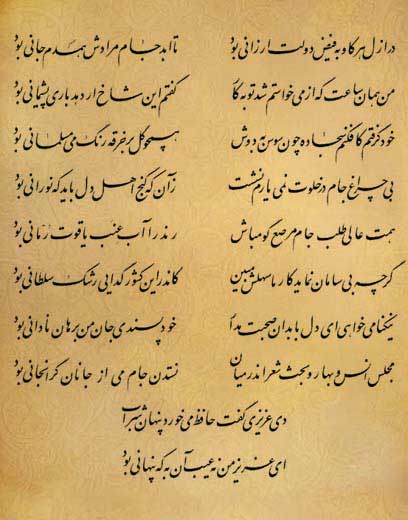 در ازل هر کاو به فیض دولت ارزانی بود تا ابد جام مرادش همدم جانی بود
من همان ساعت که از می خواستم شد توبه کار گفتم این شاخ ار دهد باری پشیمانی بود
خود گرفتم کافکنم سجاده چون سوسن به دوش همچو گل بر خرقه رنگ می مسلمانی بود
بی چراغ جام در خلوت نمی یارم نشست زآن که کنج اهل دل باید که نورانی بود
همت عالی طلب جام مرصع گو مباش رند را آب عنب یاقوت رمانی بود
گر چه بی سامان نماید کار ما سهلش مبین کاندر این کشور گدایی رشک سلطانی بود
نیکنامی خواهی ای دل با بدان صحبت مدار خودپسندی جان من برهان نادانی بود
مجلس انس و بهار و بحث شعر اندر میان نستدن جام می از جانان گرانجانی بود
دی عزیزی گفت حافظ می خورد پنهان شراب
ای عزیز من نه عیب آن به که پنهانی بود